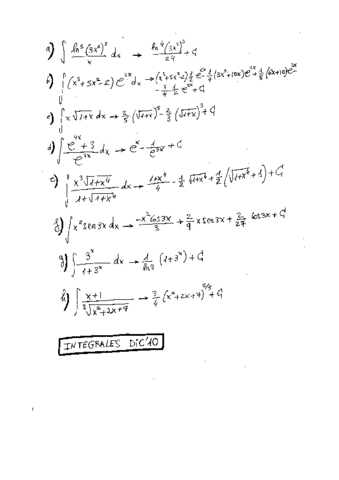 a) ∫ ln³(3x²)³/x dx → ln⁴(3x²)³/24 + C
b) ∫ (x³+5x²-2) e^(2x) dx → (x³+5x²-2) 1/2 e^(2x) - 1/4 (3x²+10x) e^(2x) + 1/8 (6x+10) e^(2x)
- 3/4 · 1/2 e^(2x) + C
c) ∫ x √(1+x) dx → 2/5 (√(1+x))⁵ - 2/3 (√(1+x))³ + C
d) ∫ (e^(4x) + 3)/e^(3x) dx → e^x - 1/e^(3x) + C
e) ∫ x³√(1+x⁴)/(1+√(1+x⁴)) dx → (1+x⁴)/4 - 1/2 √(1+x⁴) + 1/2 (√(1+x⁴) + 1) + C
f) ∫ x² sen 3x dx → -x² cos 3x/3 + 2/9 x sen 3x + 2/27 cos 3x + C
g) ∫ 3^x/(1+3^x) dx → 1/ln3 (1+3^x) + C
h) ∫ (x+1)/∛(x²+2x+7) → 3/4 (x²+2x+7)^(2/3) + C
INTEGRALES DIC'10